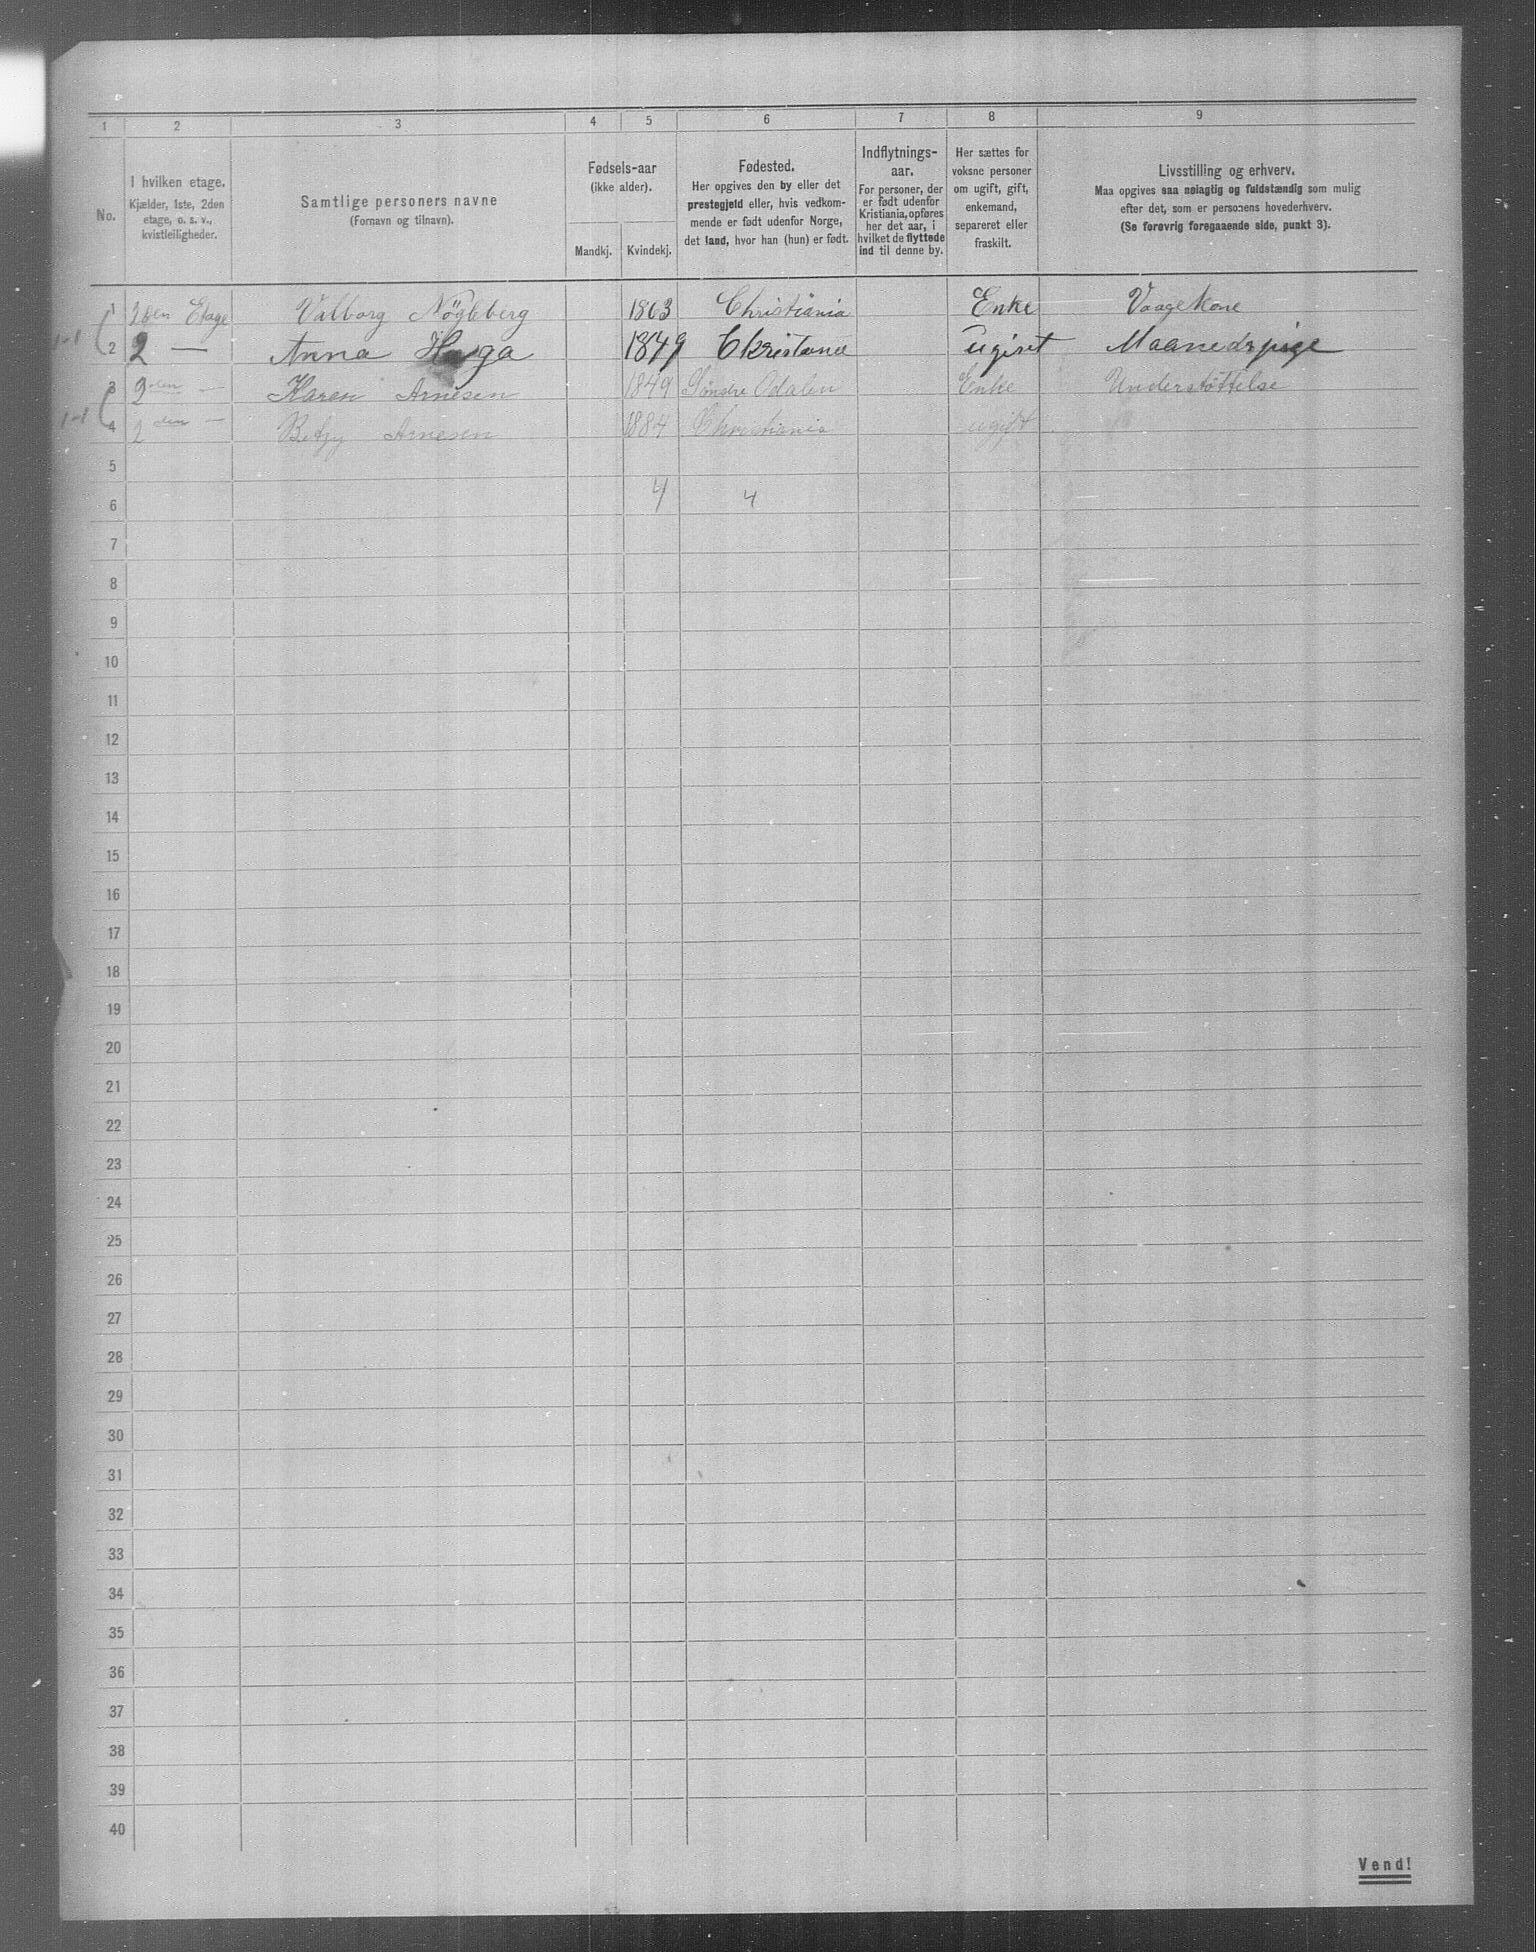 1 2 3 4 5 6 7 8 9
No.
I hvilken etage.
Kjælder, 1ste, 2den
etage, o. s. v.,
kvistleiligheder.
Samtlige personers navne
(Fornavn og tilnavn).
Fødsels-aar
(ikke alder).
Mandkj. Kvindekj.
Fødested.
Her opgives den by eller det
prestegjeld eller, hvis vedkom-
mende er født udenfor Norge,
det land, hvor han (hun) er født.
Indflytnings-
aar.
For personer, der
er født udenfor
Kristiania, opføres
her det aar, i
hvilket de flyttede
ind til denne by.
Her sættes for
voksne personer
om ugift, gift,
enkemand,
separeret eller
fraskilt.
Livsstilling og erhverv.
Maa opgives saa nøiagtig og fuldstændig som mulig
efter det, som er personens hovederhverv.
(Se forøvrig foregaaende side, punkt 3).
1 2den Etage Valborg Nögleberg 1863 Christiania Enke Vaagekone
1-1 2 2 — Anna Haga 1849 Christania ugivt Maanedspige
3 2den — Karen Arnesen 1849 Søndre Odalen Enke Understøttelse
1-1 4 2den — Betzy Arnesen 1884 Christiania ugift
5
6 4 4
7
8
9
10
11
12
13
14
15
16
17
18
19
20
21
22
23
24
25
26
27
28
29
30
31
32
33
34
35
36
37
38
39
40
Vend!